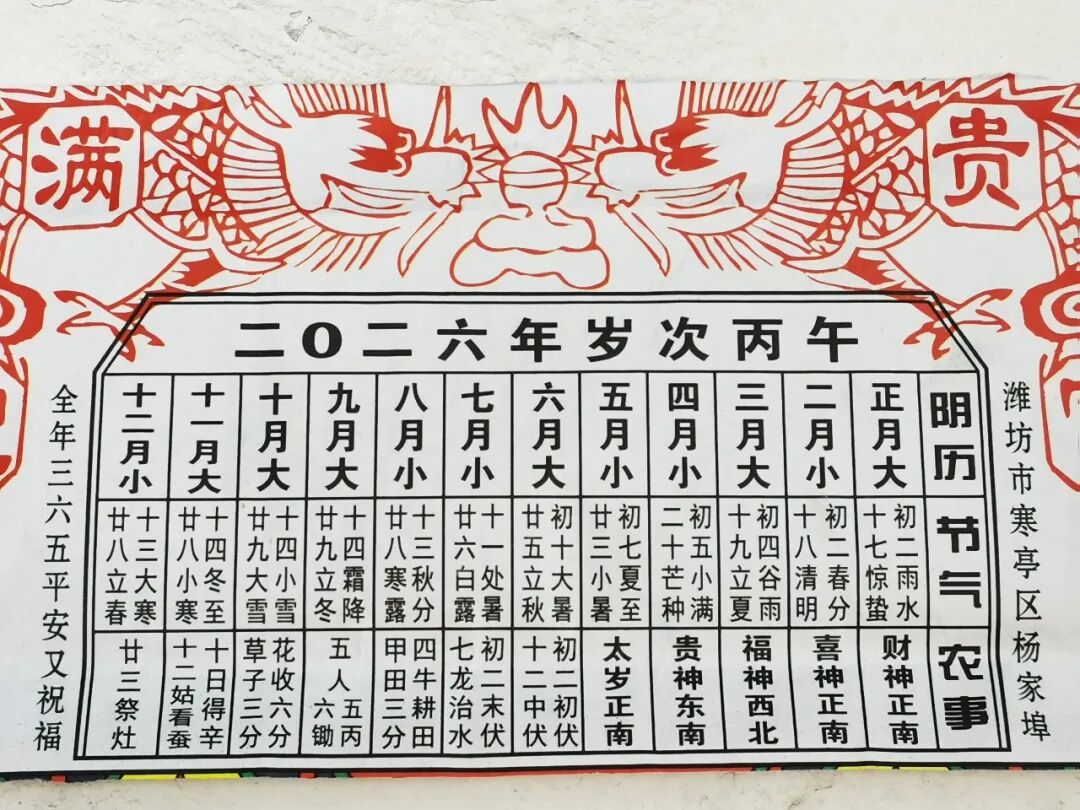 贵
满
二O二六年岁次丙午
潍坊市寒亭区杨家埠
阴历
正月大
二月小
三月大
四月小
五月小
六月大
七月小
八月小
九月大
十月大
十一月大
十二月小
节气
初二雨水
十七惊蛰
初二春分
十八清明
初四谷雨
十九立夏
初五小满
二十芒种
初七夏至
廿三小暑
初十大暑
廿五立秋
十一处暑
廿六白露
十三秋分
廿八寒露
十四霜降
廿九立冬
十四小雪
廿九大雪
十四冬至
廿八小寒
十三大寒
廿八立春
农事
财神正南
喜神正南
福神西北
贵神东南
太岁正南
初二初伏
十二中伏
初二末伏
七龙治水
四牛耕田
甲田三分
五丙
五人六锄
花收六分
草子三分
十日得辛
十二姑看蚕
廿三祭灶
全年三六五平安又祝福